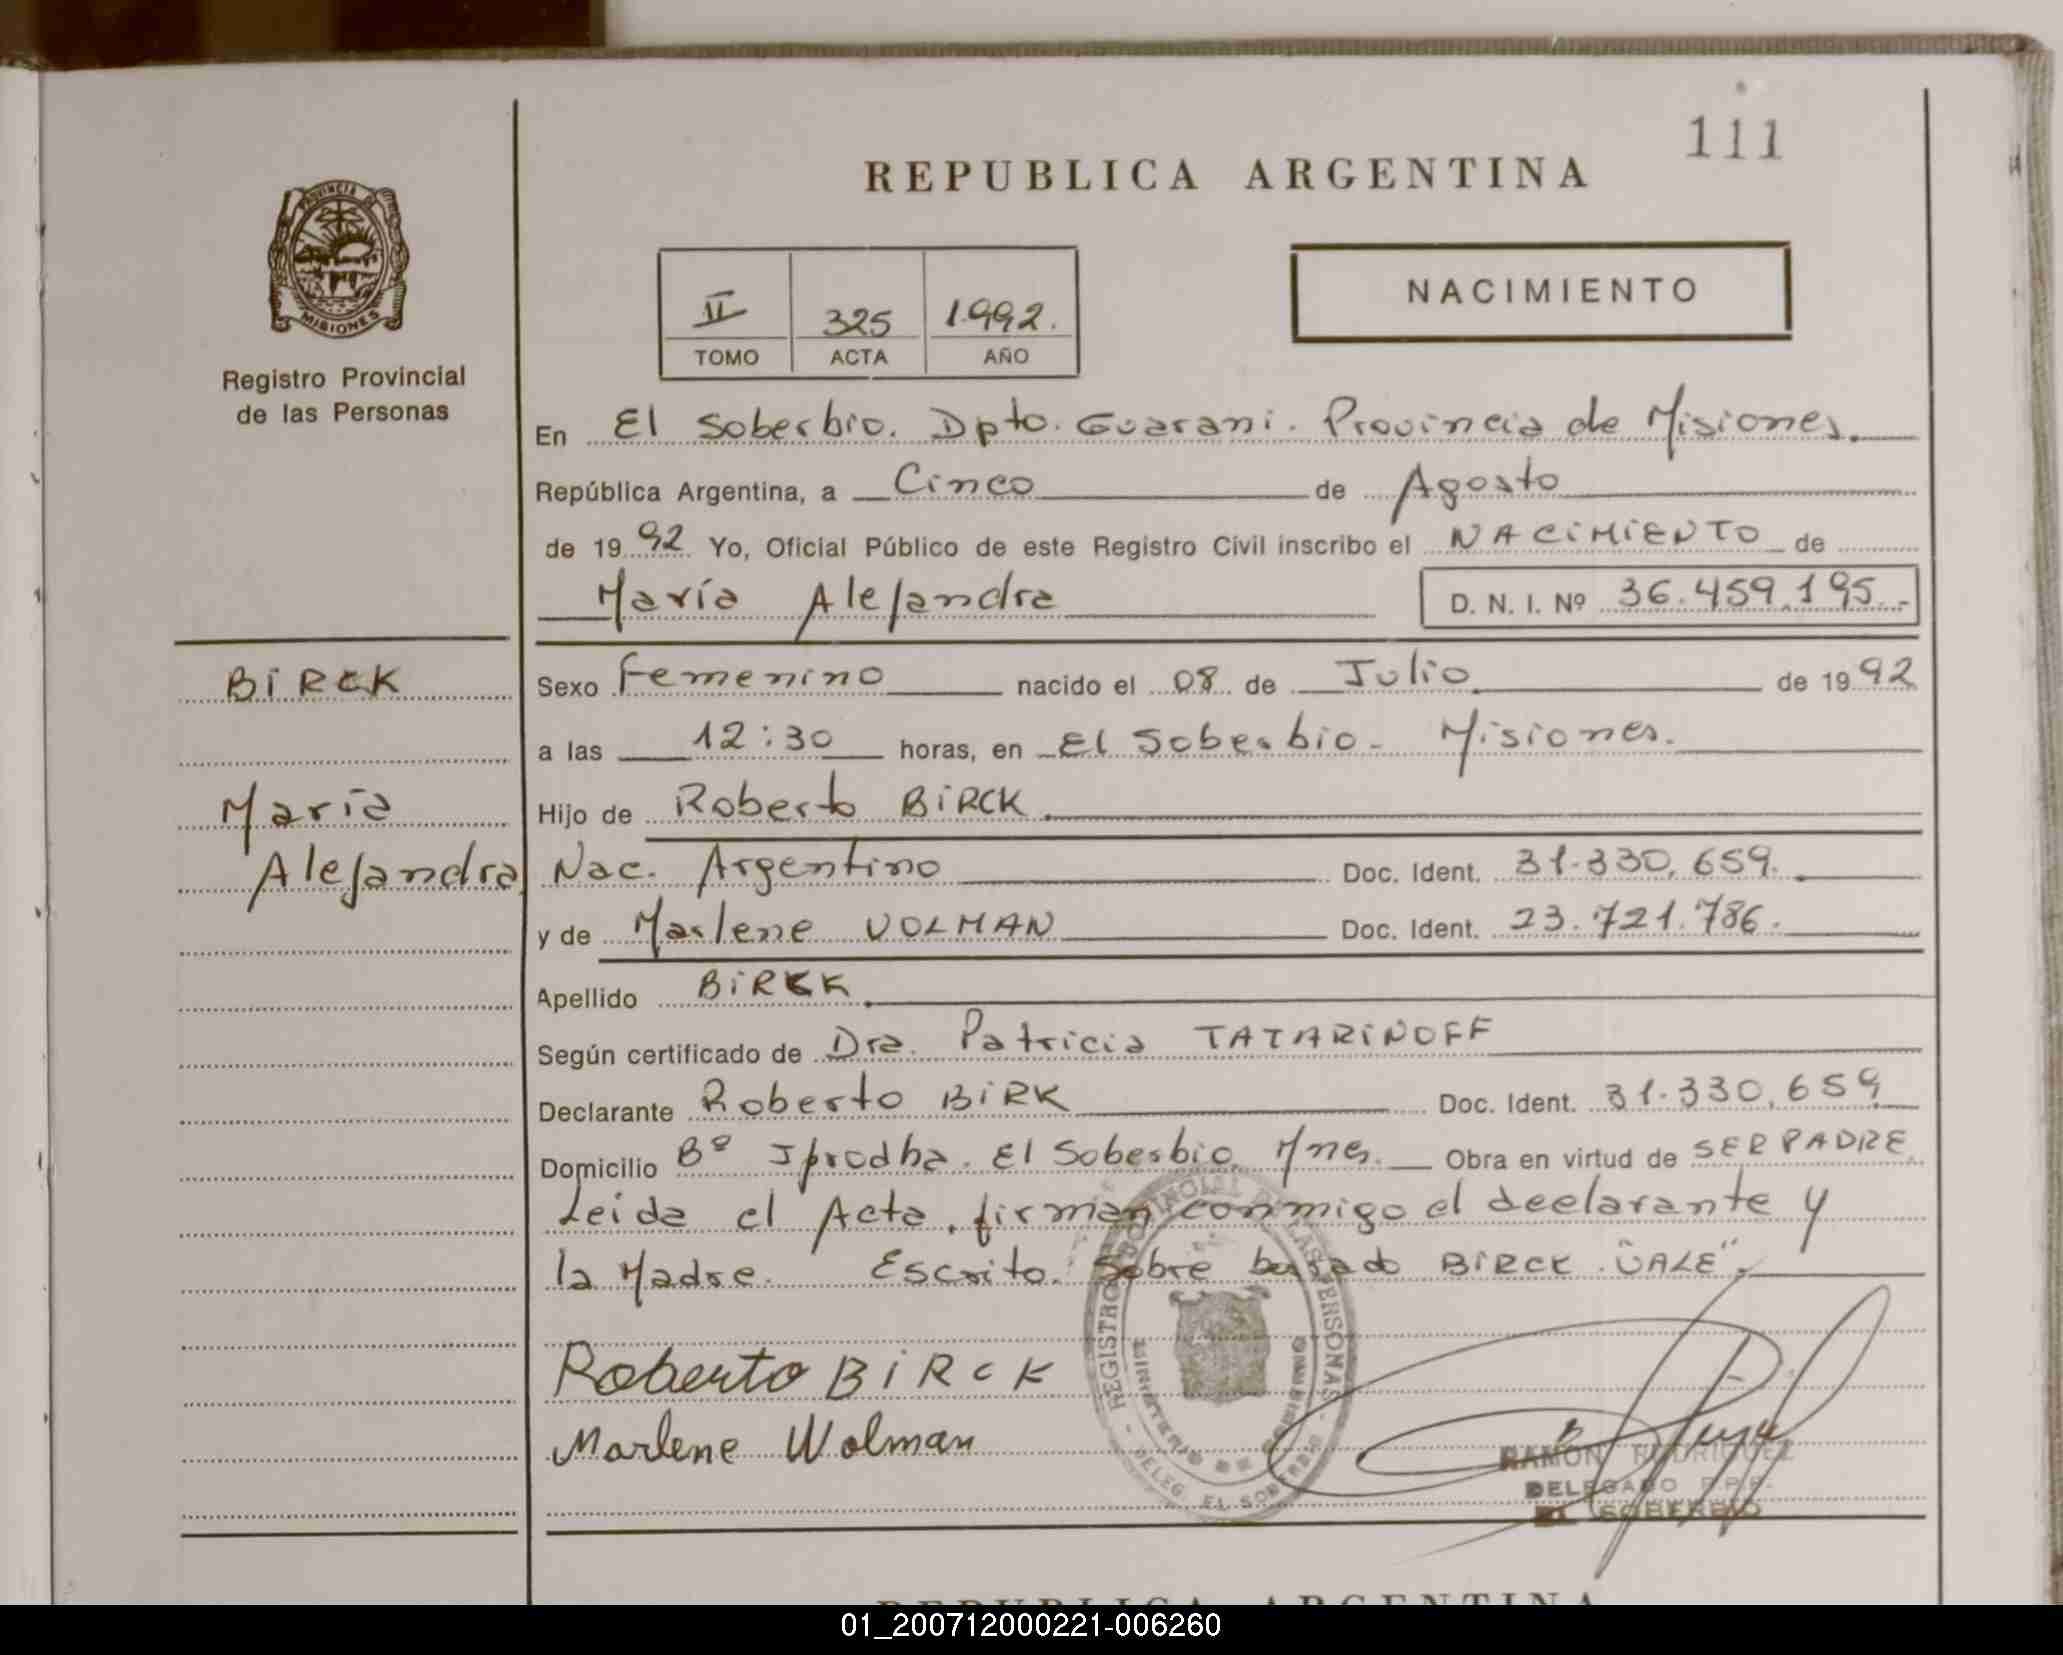 111
REPUBLICA ARGENTINA
PROVINCIA DE
MISIONES
Registro Provincial
de las Personas
II 325 1.992.
TOMO ACTA AÑO
NACIMIENTO
En El Soberbio. Dpto. Guarani. Provincia de Misiones.
República Argentina, a Cinco de Agosto
de 1992 Yo, Oficial Público de este Registro Civil inscribo el NACIMIENTO de
María Alejandra D. N. I. Nº 36.459.195.-
BIRCK
Sexo Femenino nacido el 08 de Julio de 1992
a las 12:30 horas, en El Soberbio - Misiones.
María
Hijo de Roberto BIRCK.
Alejandra
Nac. Argentino Doc. Ident. 31.330.659.
y de Marlene VOLMAN Doc. Ident. 23.721.786.
Apellido BIRCK.
Según certificado de Dra. Patricia TATARINOFF
Declarante Roberto BIRK Doc. Ident. 31.330.659
Domicilio Bº Iprodha. El Soberbio Mnes. Obra en virtud de SER PADRE.
Leida el Acta, firman conmigo el declarante y
la Madre. Escrito. Sobre borrado BIRCK "VALE".
REGISTRO PROVINCIAL DE LAS PERSONAS
MINISTERIO DE GOBIERNO
- DELEG. EL SOBERBIO -
Roberto BIRCK
Marlene Wolman
RAMON RODRIGUEZ
DELEGADO R.P.P.
EL SOBERBIO
REPUBLICA ARGENTINA
01_200712000221-006260